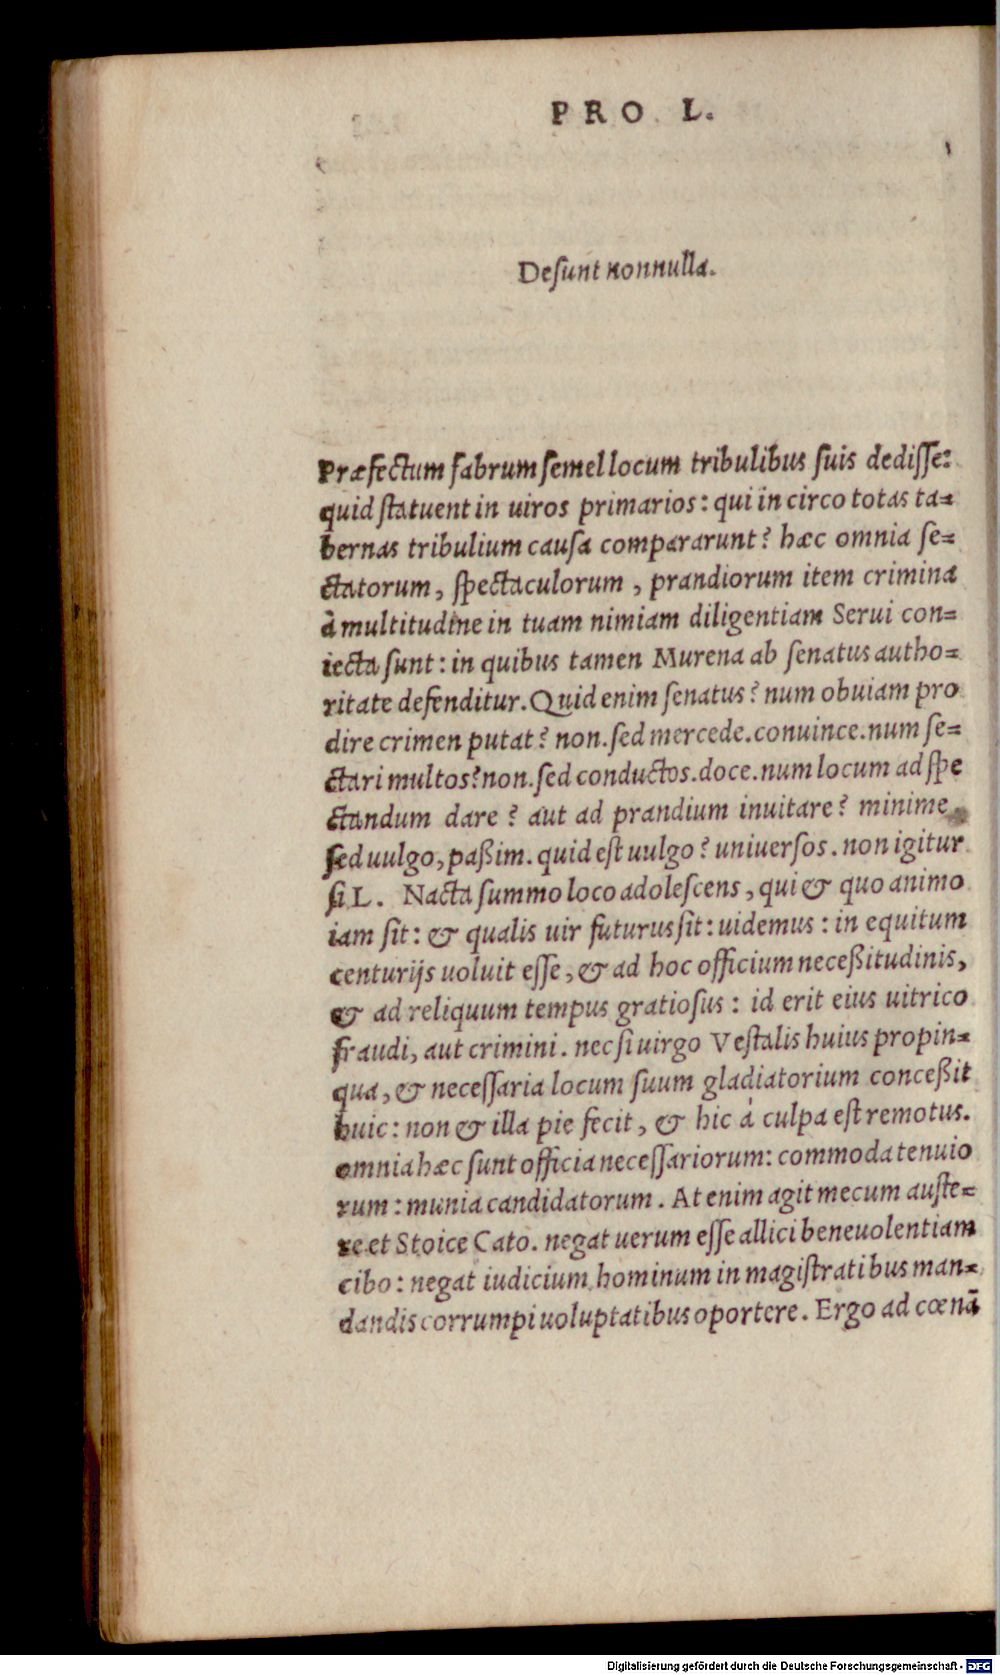 PRO L.
Desunt nonnulla.
Præfectum fabrum semel locum tribulibus suis dedisse:
quid statuent in uiros primarios: qui in circo totas ta=
bernas tribulium causa compararunt? hæc omnia se=
ctatorum, spectaculorum, prandiorum item crimina
à multitudine in tuam nimiam diligentiam Serui con=
iecta sunt: in quibus tamen Murena ab senatus autho=
ritate defenditur. Quid enim senatus? num obuiam pro
dire crimen putat? non. sed mercede. conuince. num se=
ctari multos? non. sed conductos. doce. num locum ad spe
ctandum dare? aut ad prandium inuitare? minime
sed uulgo, paßim. quid est uulgo? uniuersos. non igitur
si L. Nacta summo loco adolescens, qui & quo animo
iam sit: & qualis uir futurus sit: uidemus: in equitum
centurijs uoluit esse, & ad hoc officium neceßitudinis,
& ad reliquum tempus gratiosus: id erit eius uitrico
fraudi, aut crimini. nec si uirgo Vestalis huius propin=
qua, & necessaria locum suum gladiatorium conceßit
huic: non & illa pie fecit, & hic à culpa est remotus.
omnia hæc sunt officia necessariorum: commoda tenuio
rum: munia candidatorum. At enim agit mecum auste=
re et Stoice Cato. negat uerum esse allici beneuolentiam
cibo: negat iudicium hominum in magistratibus man=
dandis corrumpi uoluptatibus oportere. Ergo ad cœnā
Digitalisierung gefördert durch die Deutsche Forschungsgemeinschaft - DFG